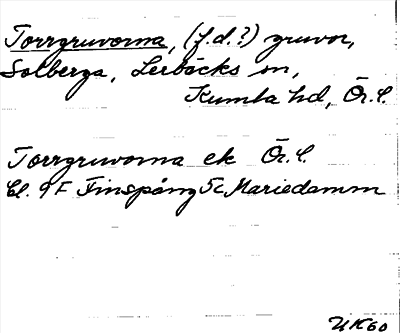 Torrgruvorna, (f.d.?) gruvor,
Solberga, Lerbäcks sn,
Kumla hd, Ör.l.
Torrgruvorna ek Ör.l.
Bl. 9F Finspång 5c Mariedamm
UK60